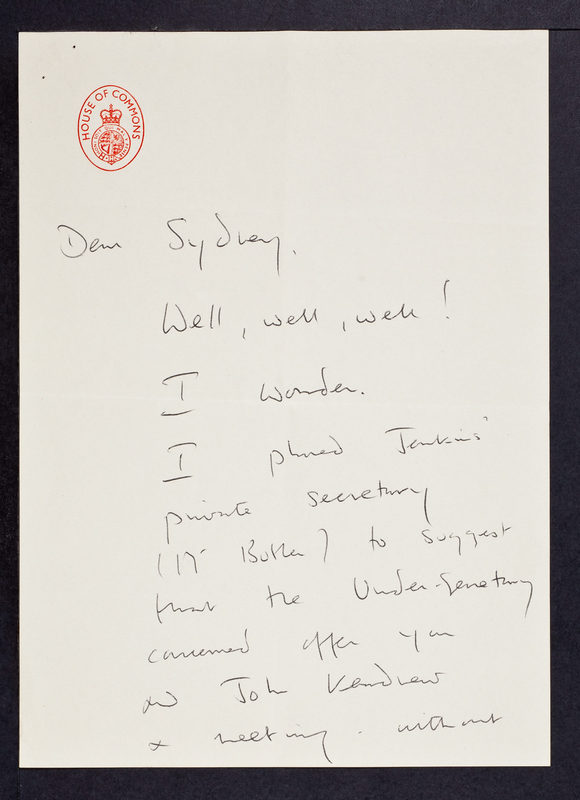 HOUSE OF COMMONS
Dear Sydney,
Well, well, well!
I wonder.
I phoned Jenkins'
private secretary
( Butler) to suggest
that the Under-Secretary
concerned offer you
and John Kendrew
a meeting. without